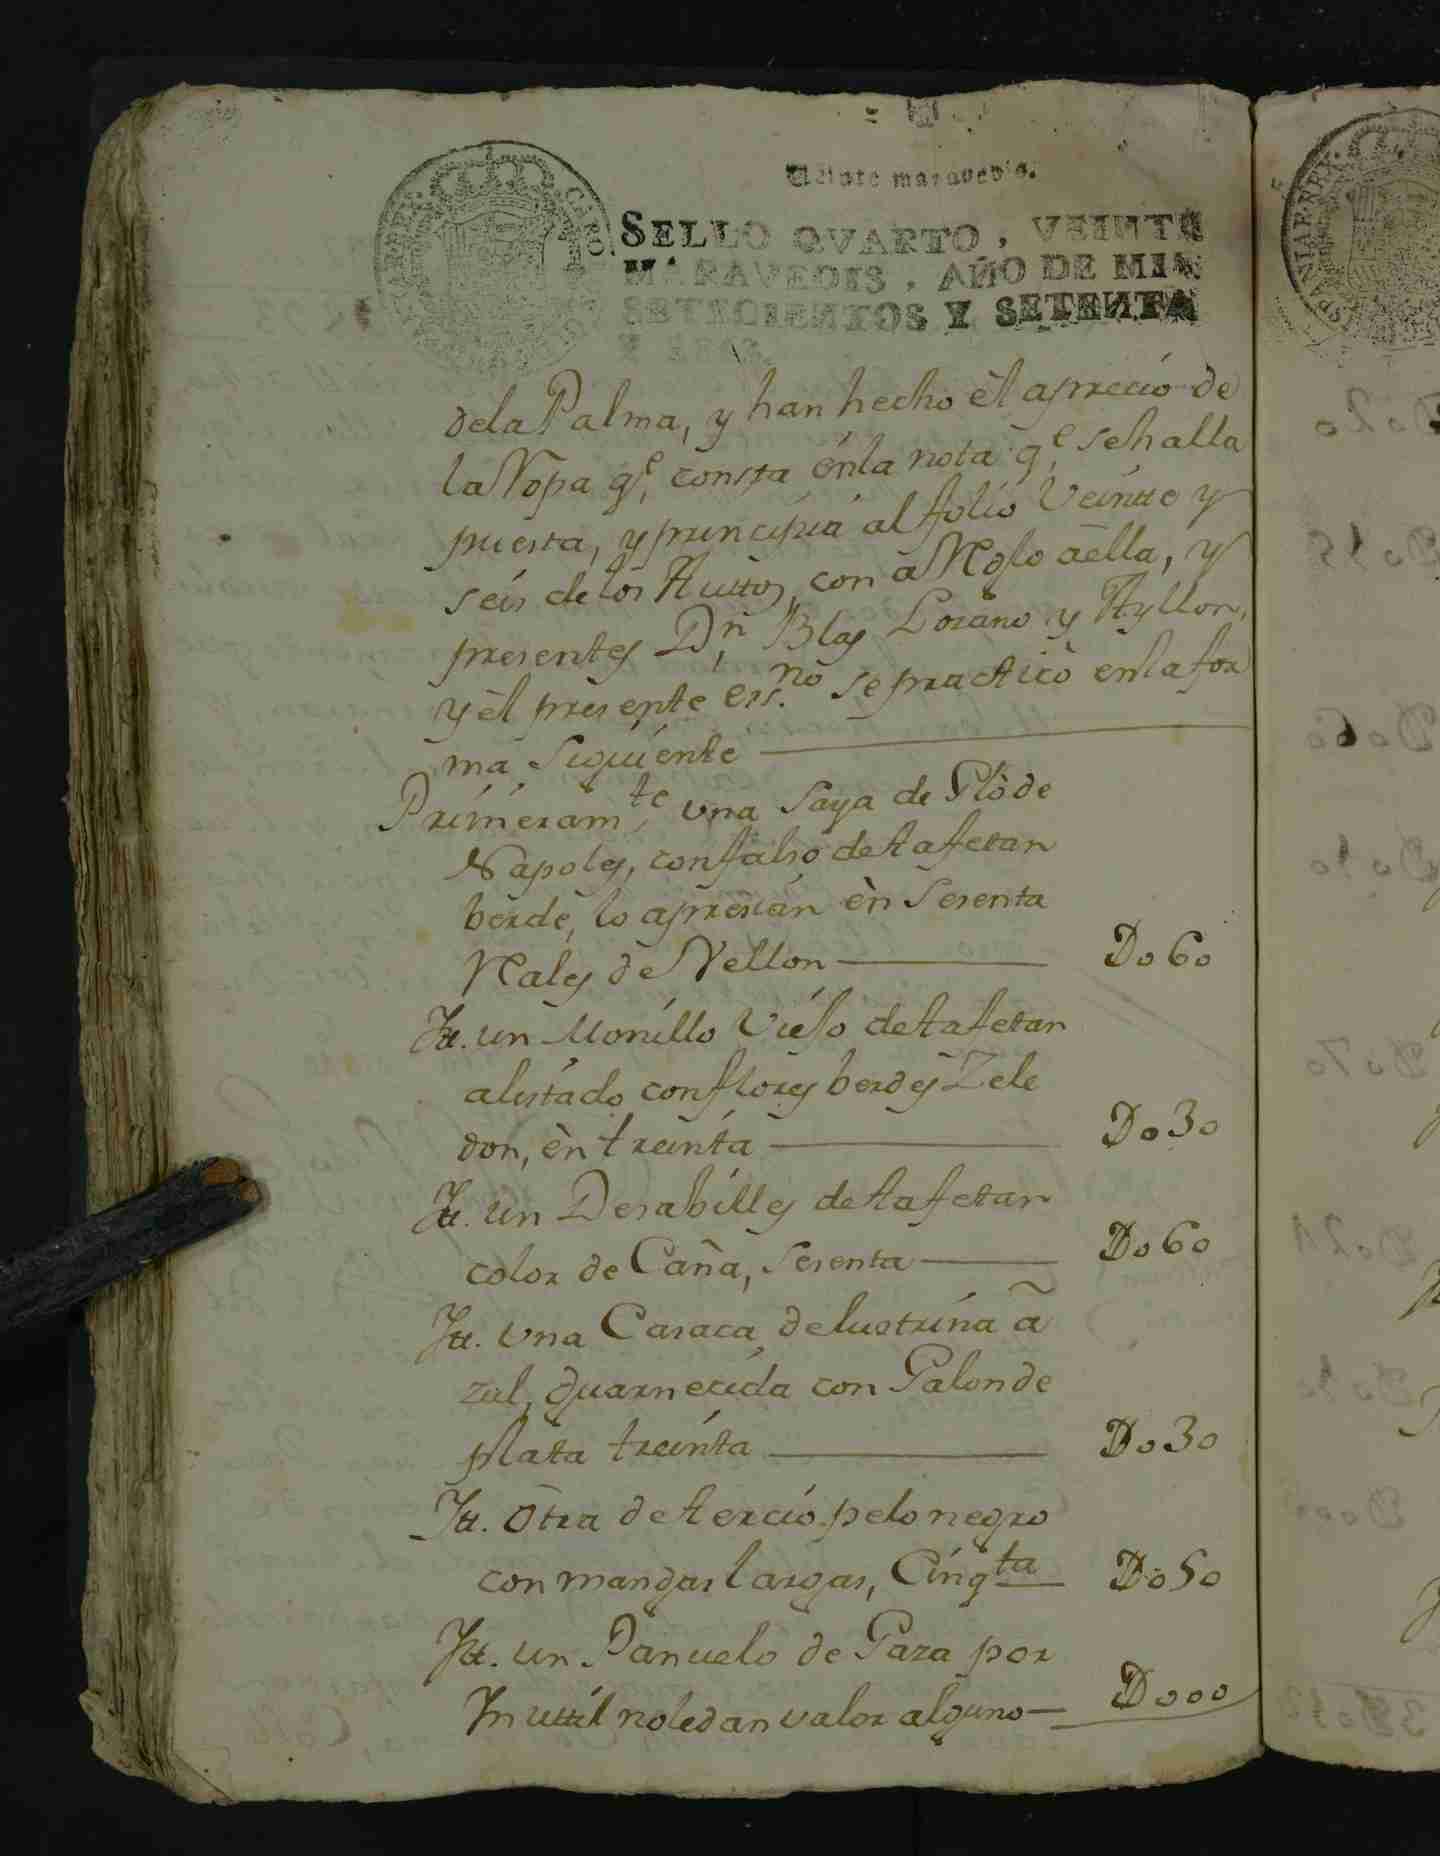 Veinte maravedis.
SELLO QVARTO, VEINTE
MARAVEDIS, AÑO DE MIL
SETECIENTOS Y SETENTA
dela Palma, y han hecho èl aprecio de
la Ropa qᵉ, consta énla nota qᵉ, sehalla
puesta, y principia al folio Veintte y
seis de los Auttos, con àRеglo aèlla, y
presentes Dⁿ, Blas Lozano y Ayllon,
y èl presente essⁿᵒ. se practicò enla for
ma siguiente
Primeramᵗᵉ, una saya de Glòde
Napoles, con falso de tafetan
berde, lo aprecian èn sesenta
Rales de Vellon Do60
Ytt. un Monillo Viejo de tafetan
alistado con flores berdes Zele
don, èn treinta Do30
Ytt. un Desabilles de tafetan
color de Caña, sesenta Do60
Ytt. una Casaca de lustrina a
zul, guarnecida con Galon de
plata treinta Do30
Ytt. òtra de terciopelo negro
con mangas largas, Cinqᵗᵃ Do50
Ytt. un Panuelo de Gaza por
Inuttil no le dan valor alguno Dooo